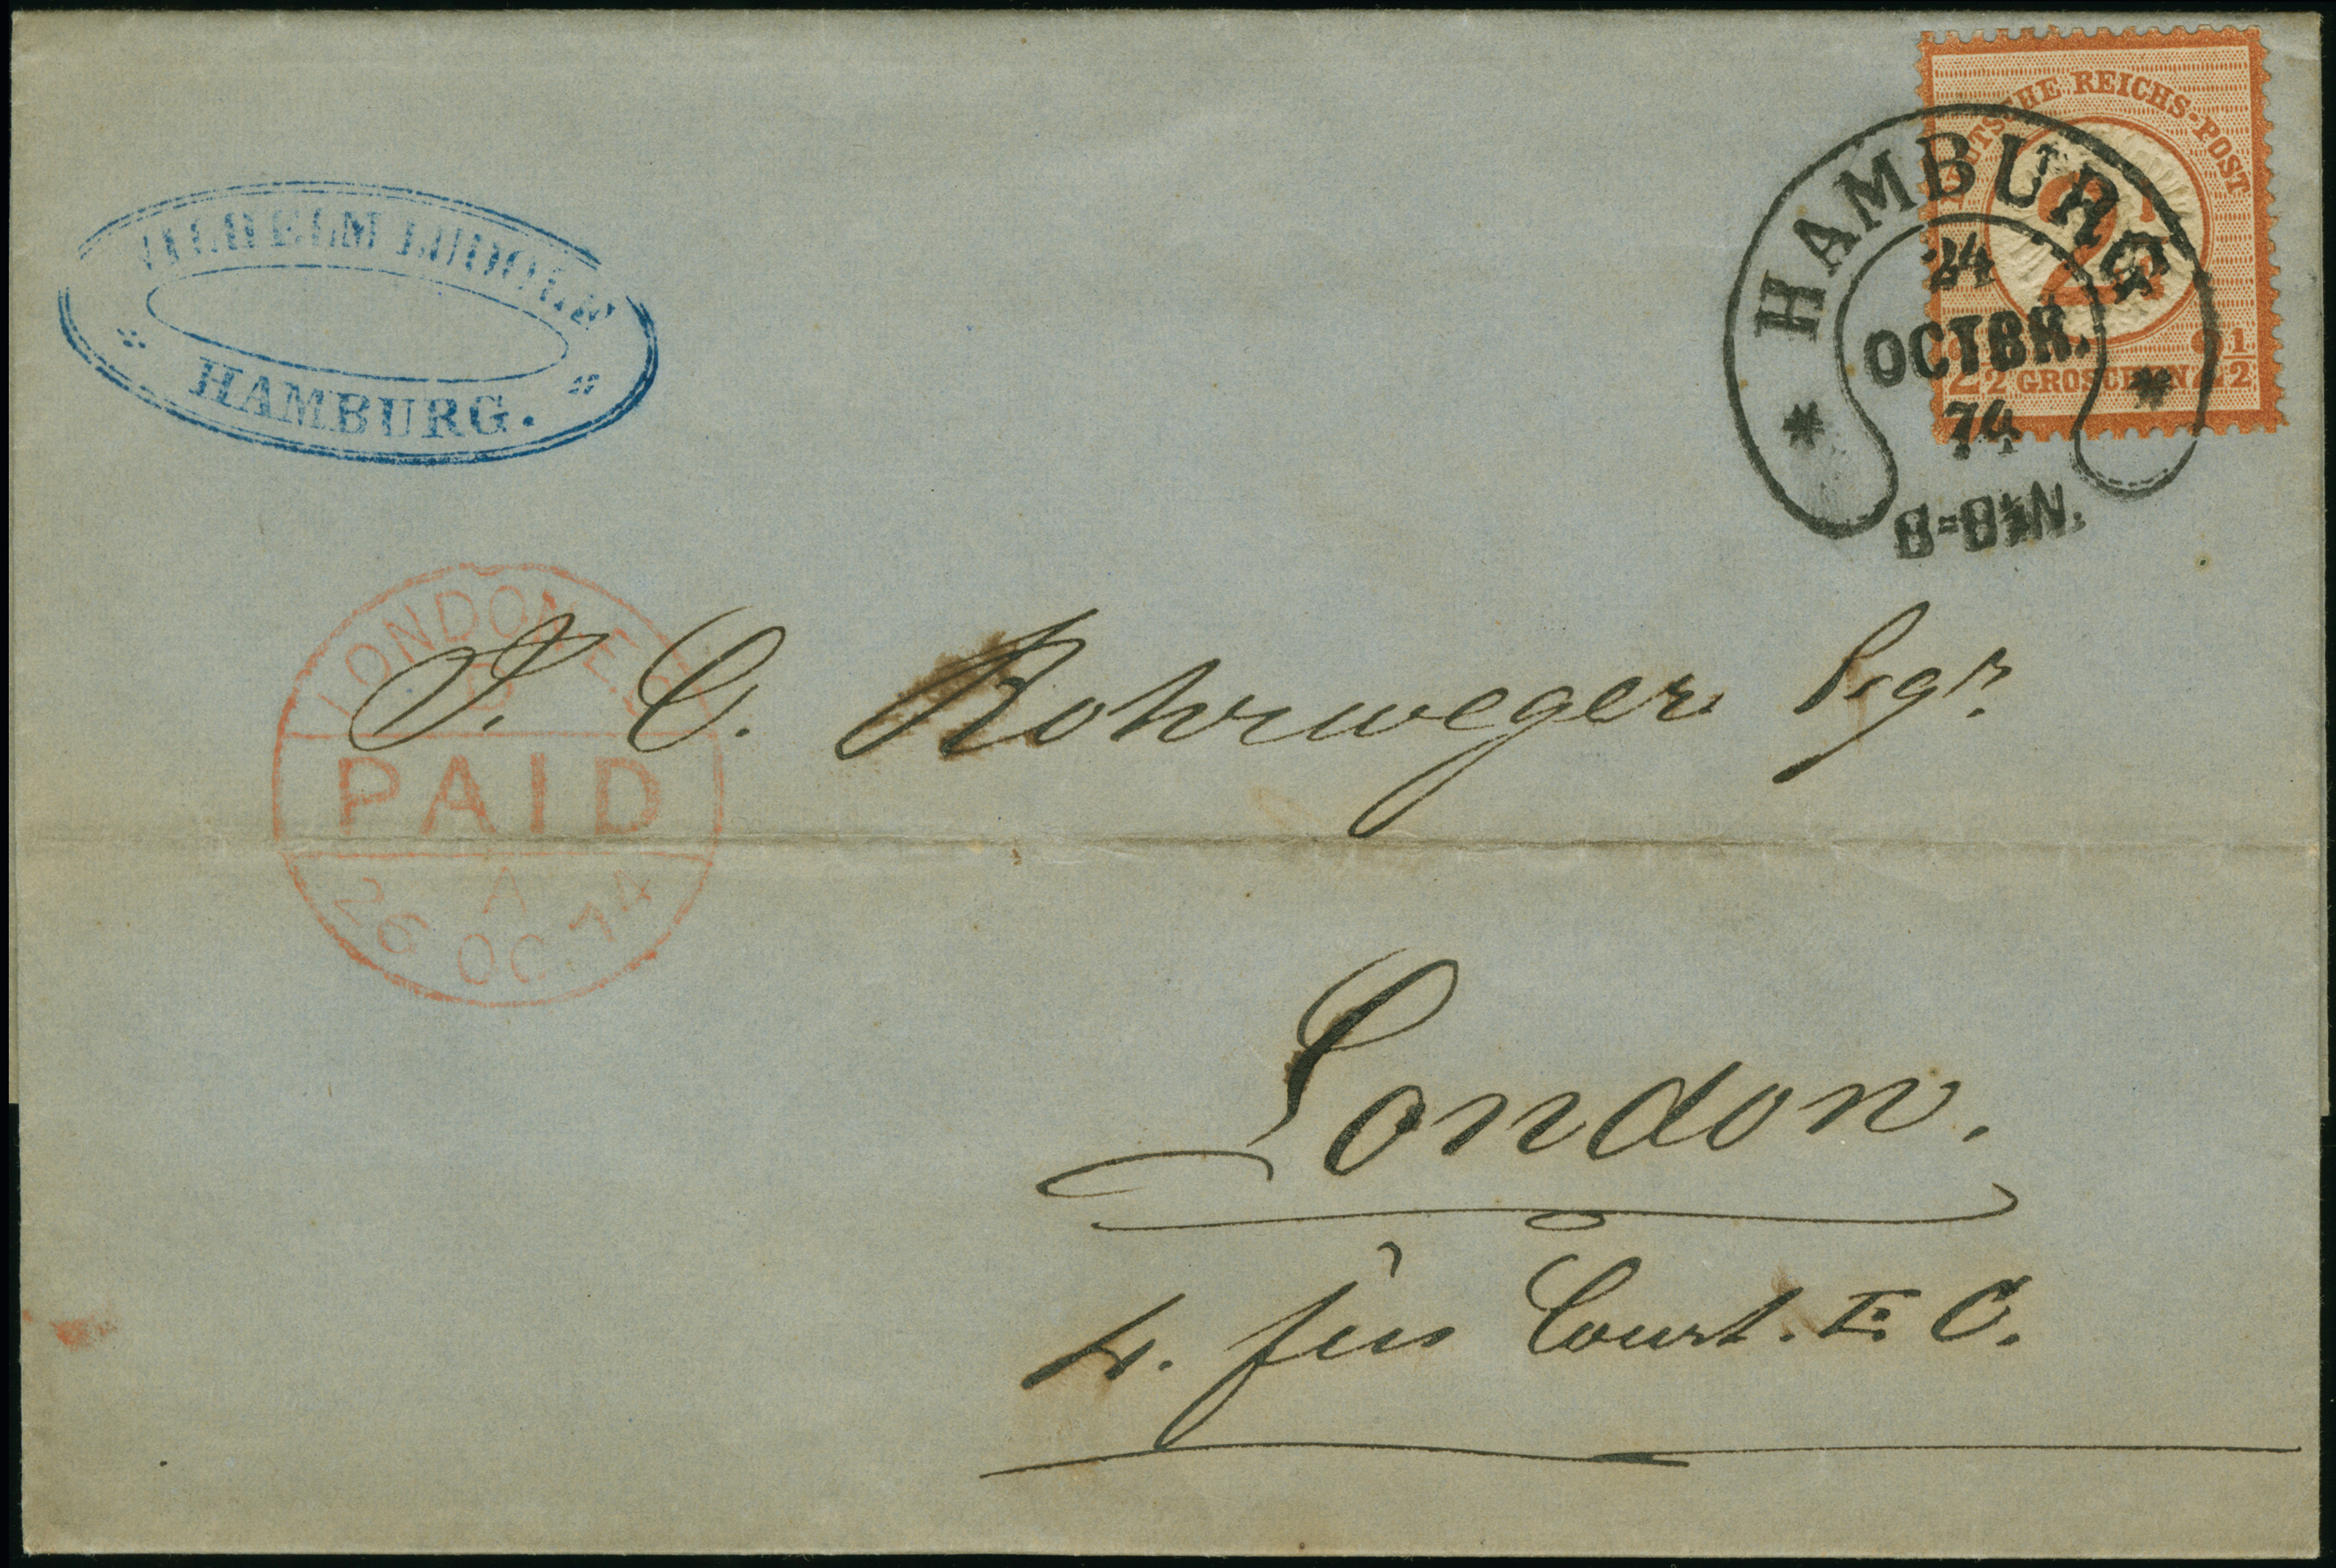 WILHELM LUDOLF
HAMBURG.
DEUTSCHE REICHS-POST
2½
2½ GROSCHEN 2½
HAMBURG
24
OCTBR.
74
8-8½N.
LONDON E.C
PAID
A
26 OC 74
J. C. Rohrweger Esqr.
London.
4. Fen Court. E. C.